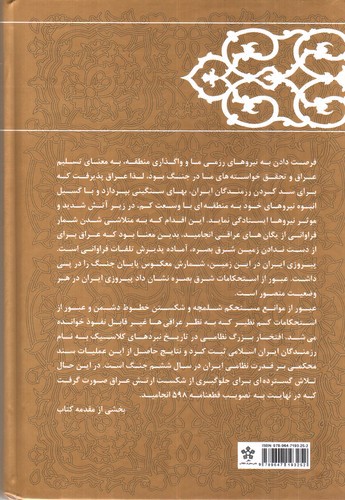 فرصت دادن به نیروهای رزمی ما و واگذاری منطقه، به معنای تسلیم
عراق و تحقق خواسته های ما در جنگ بود. لذا عراق پذیرفت که
برای سد کردن رزمندگان ایران، بهای سنگینی بپردازد و با گسیل
انبوه نیروهای خود به منطقه ای با وسعت کم، در زیر آتش شدید و
موثر نیروها ایستادگی نماید. این اقدام که به متلاشی شدن شمار
فراوانی از یگان های عراقی انجامید. بدین معنا بود که عراق برای
از دست ندادن زمین شرق بصره، آماده پذیرش تلفات فراوانی است.
پیروزی ایران در این زمین، شمارش معکوس پایان جنگ را در پی
داشت. عبور از استحکامات شرق بصره نشان داد پیروزی ایران در هر
وضعیت متصور است.
عبور از موانع مستحکم شلمچه و شکستن خطوط دشمن و عبور از
استحکامات کم نظیر که به نظر عراقی ها غیر قابل نفوذ خوانده
می شد، افتخار بزرگ نظامی در تاریخ نبردهای کلاسیک به نام
رزمندگان ایران اسلامی ثبت کرد و نتایج حاصل از این عملیات سند
محکمی بر قدرت نظامی ایران در سال ششم جنگ است. در این حال
تلاش گسترده ای برای جلوگیری از شکست ارتش عراق صورت گرفت
که در نهایت به تصویب قطعنامه ۵۹۸ انجامید.
بخشی از مقدمه کتاب